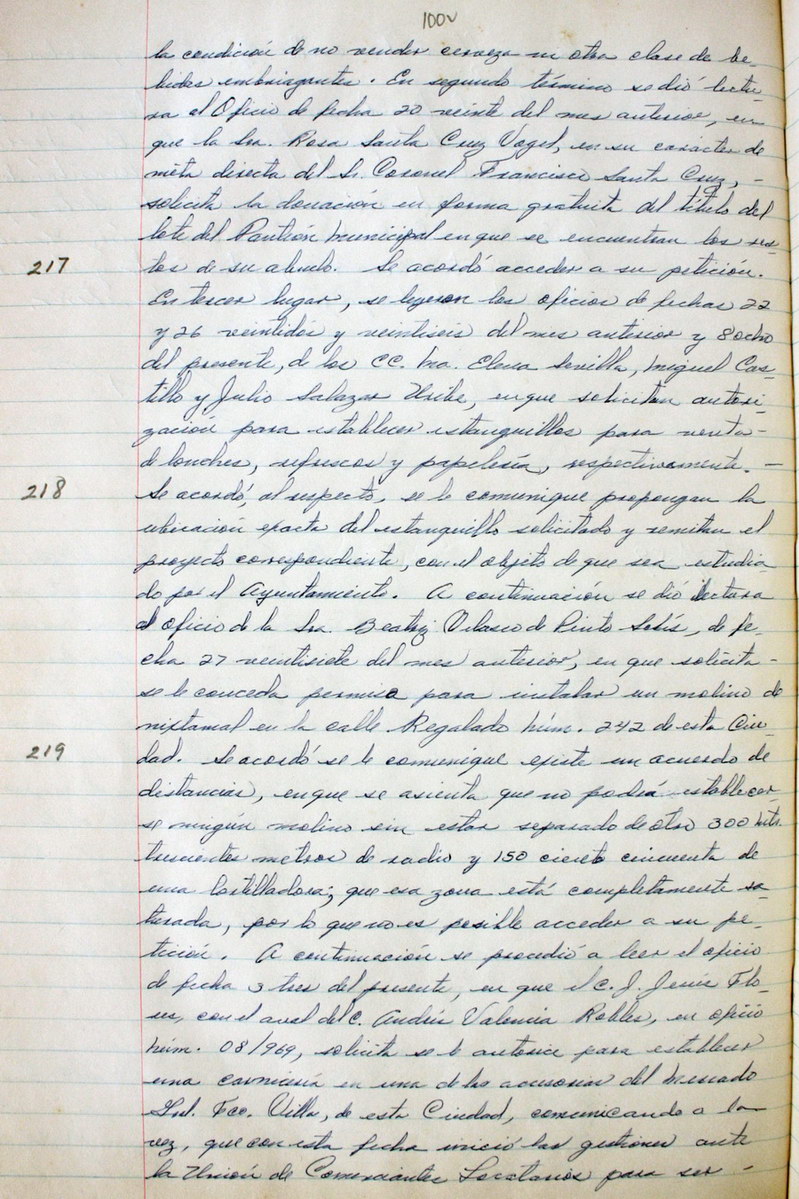 100v
la condición de no vender cerveza ni otra clase de be-
bidas embriagantes. En segundo término se dió lectu-
ra al Oficio de fecha 20 veinte del mes anterior, en
que la Sra. Rosa Santa Cruz Vogel, en su caracter de
nieta directa del Sr. Coronel Francisco Santa Cruz, -
solicita la donación en forma gratuita del título del
lote del Panteón Municipal en que se encuentran los res-
217 tos de su abuelo. Se acordó acceder a su petición.
En tercer lugar, se leyeron los oficios de fechas 22
y 26 veintidós y veintiseis del mes anterior y 8 ocho
del presente, de los CC. Ma. Elena Sevilla, Miguel Cas-
tillo y Julio Salazar Uribe, en que solicitan autori-
zación para establecer estanquillos para venta -
de lonches, refrescos y papelería, respectivamente. -
218 Se acordó, al respecto, se le comunique propongan la
ubicación exacta del estanquillo solicitado y remitan el
proyecto correspondiente, con el objeto de que sea estudia-
do por el Ayuntamiento. A continuación se dió lectura
al oficio de la Sra. Beatriz Velasco de Pinto Solís, de fe-
cha 27 veintisiete del mes anterior, en que solicita -
se le conceda permiso para instalar un molino de
nixtamal en la calle Regalado Núm. 242 de esta Ciu-
219 dad. Se acordó se le comunique existe un acuerdo de
distancias, en que se asienta que no podrá establecer-
se ningún molino sin estar separado de otro 300 Mts.
trescientos metros de radio y 150 ciento cincuenta de
una tortilladora; que esa zona está completamente sa-
turada, por lo que no es posible acceder a su pe-
tición. A continuación se procedió a leer el oficio
de fecha 3 tres del presente, en que el C. J. Jesús Flo-
res, con el aval del C. Andrés Valencia Robles, en oficio
Núm. 08/969, solicita se le autorice para establecer
una carnicería en una de las accesorias del Mercado
Gral. Fco. Villa, de esta Ciudad, comunicando a la
vez, que con esta fecha inició las gestiones ante
la Unión de Comerciantes Locatarios para ser -